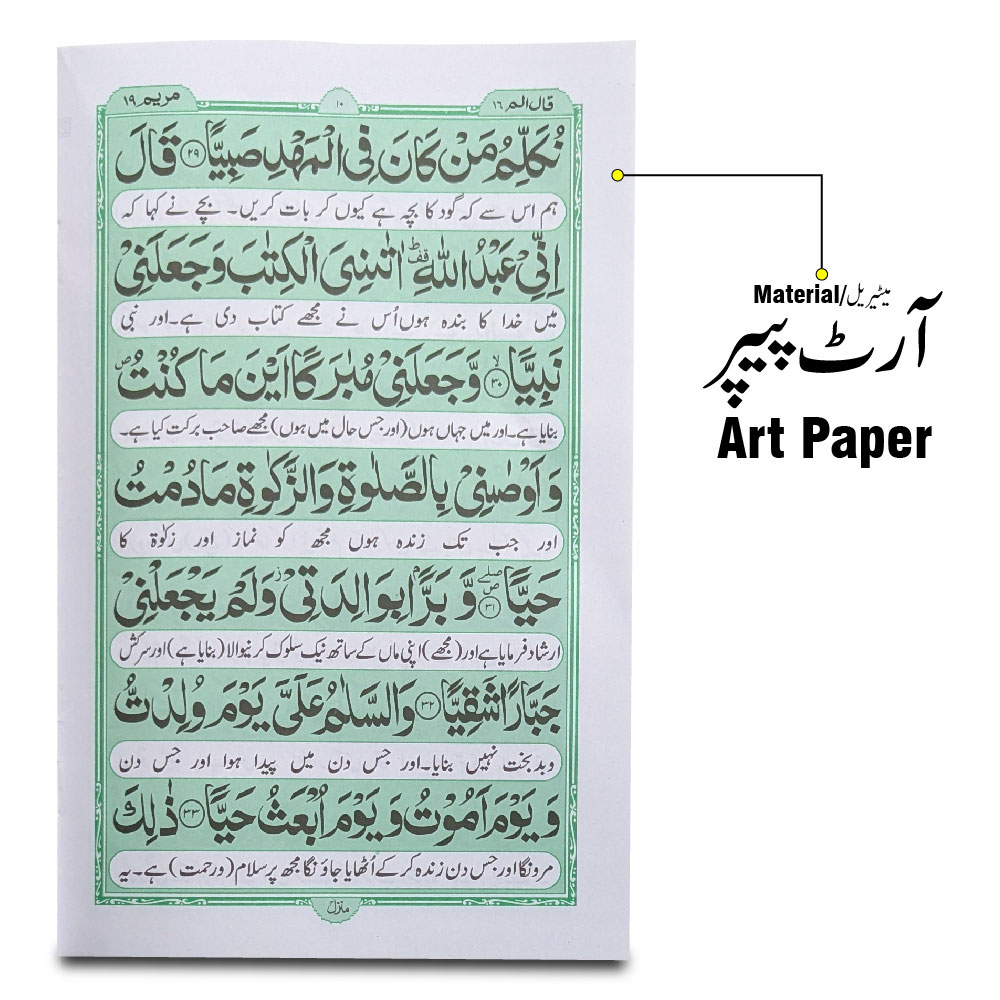 قال الم ١٦
١٠
مريم ١٩
نُكَلِّمُ مَنْ كَانَ فِى الْمَهْدِ صَبِيًّا ۝٢٩ قَالَ
ہم اس سے کہ گود کا بچہ ہے کیوں کر بات کریں۔ بچے نے کہا کہ
اِنِّىْ عَبْدُ اللّٰهِ ؕ قف اٰتٰىنِىَ الْكِتٰبَ وَجَعَلَنِىْ
میں خدا کا بندہ ہوں اُس نے مجھے کتاب دی ہے۔اور نبی
نَبِيًّا ۙ۝٣٠ وَّجَعَلَنِىْ مُبٰرَكًا اَيْنَ مَا كُنْتُ ص
بنایا ہے۔اور میں جہاں ہوں(اور جس حال میں ہوں) مجھے صاحب برکت کیا ہے۔
وَاَوْصٰنِىْ بِالصَّلٰوةِ وَالزَّكٰوةِ مَا دُمْتُ
اور جب تک زندہ ہوں مجھ کو نماز اور زکوٰۃ کا
حَيًّا ۖص ۝٣١ وَّ بَرًّۢا بِوَالِدَتِىْ ز وَلَمْ يَجْعَلْنِىْ
ارشاد فرمایا ہے اور(مجھے) اپنی ماں کے ساتھ نیک سلوک کرنیوالا(بنایا ہے) اور سرکش
جَبَّارًا شَقِيًّا ۝٣٢ وَالسَّلٰمُ عَلَىَّ يَوْمَ وُلِدْتُّ
وبدبخت نہیں بنایا۔اور جس دن میں پیدا ہوا اور جس دن
وَيَوْمَ اَمُوْتُ وَيَوْمَ اُبْعَثُ حَيًّا ۝٣٣ ذٰلِكَ
مرونگا اور جس دن زندہ کر کے اُٹھایا جاؤنگا مجھ پر سلام(ورحمت) ہے۔یہ
منزل
Material/میٹیریل
آرٹ پیپر
Art Paper